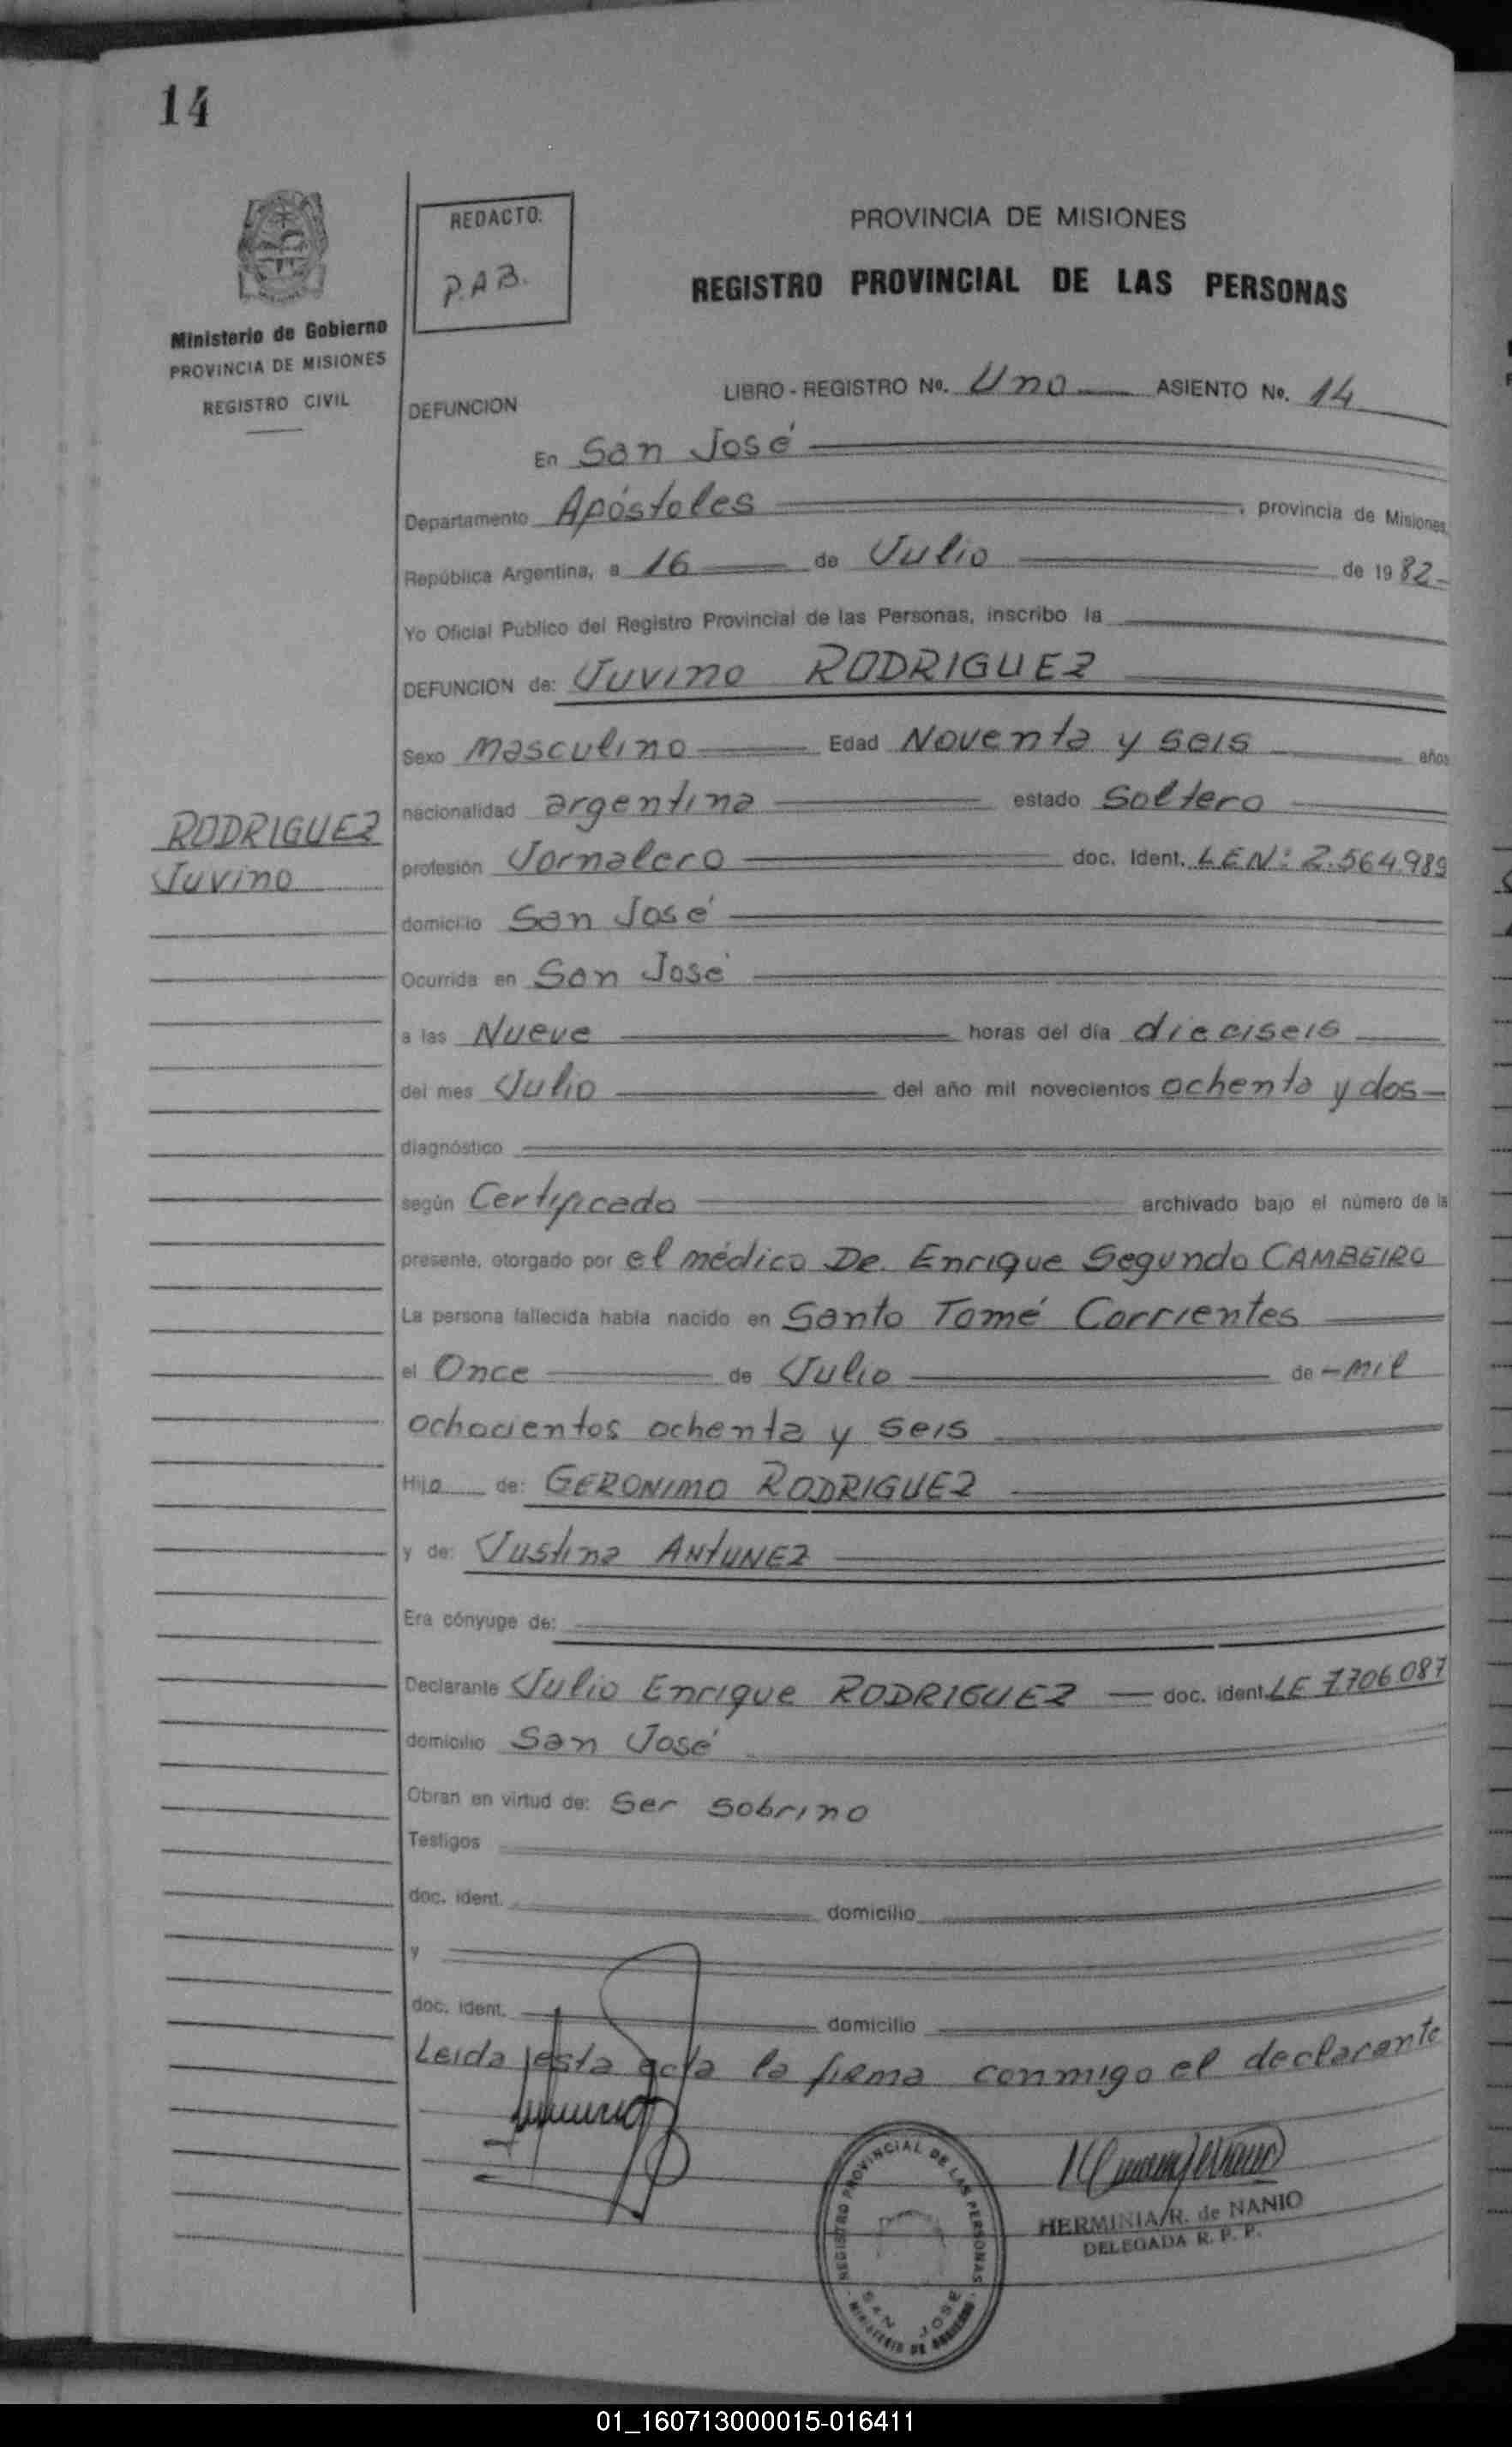 14
REDACTO:
P.A.B.
PROVINCIA DE MISIONES
REGISTRO PROVINCIAL DE LAS PERSONAS
Ministerio de Gobierno
PROVINCIA DE MISIONES
REGISTRO CIVIL
LIBRO - REGISTRO No. Uno ASIENTO No. 14
DEFUNCION
En San José
Departamento Apóstoles, provincia de Misiones
República Argentina, a 16 de Julio de 1982
Yo Oficial Público del Registro Provincial de las Personas, inscribo la
DEFUNCION de: Juvino RODRIGUEZ
Sexo masculino Edad Noventa y seis años
nacionalidad argentina estado Soltero
RODRIGUEZ
Juvino
profesión Jornalero doc. Ident. LEN: 2.564.989
domicilio San José
Ocurrida en San José
a las Nueve horas del día dieciseis
del mes Julio del año mil novecientos ochenta y dos
diagnóstico
según Certificado archivado bajo el número de la
presente, otorgado por el médico De. Enrique Segundo CAMBEIRO
La persona fallecida había nacido en Santo Tomé Corrientes
el Once de Julio de - mil
ochocientos ochenta y seis
Hijo de: GERONIMO RODRIGUEZ
y de: Justina ANTUNEZ
Era cónyuge de:
Declarante Julio Enrique RODRIGUEZ doc. ident. LE 7706087
domicilio San José
Obran en virtud de: Ser sobrino
Testigos
doc. ident. domicilio
y
doc. ident. domicilio
Leida esta acta la firma conmigo el declarante
REGISTRO PROVINCIAL DE LAS PERSONAS
SAN JOSE
MINISTERIO DE GOBIERNO
HERMINIA R. de NANIO
DELEGADA R. P. P.
01_160713000015-016411